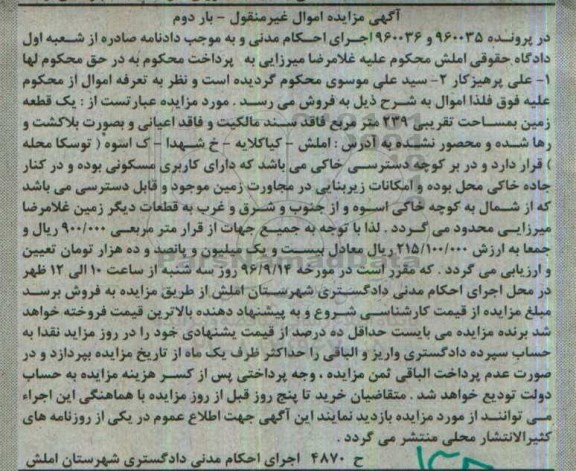 آگهی مزایده اموال غیرمنقول - بار دوم
در پرونده ۹۶۰۰۳۵ و ۹۶۰۰۳۶ اجرای احکام مدنی و به موجب دادنامه صادره از شعبه اول
دادگاه حقوقی املش محکوم علیه غلامرضا میرزایی به پرداخت محکوم به در حق محکوم لها
۱- علی پرهیزکار ۲- سید علی موسوی محکوم گردیده است و نظر به تعرفه اموال از محکوم
علیه فوق فلذا اموال به شرح ذیل به فروش می رسد . مورد مزایده عبارتست از : یک قطعه
زمین بمساحت تقریبی ۲۳۹ متر مربع فاقد سند مالکیت و فاقد اعیانی و بصورت بلاکشت و
رها شده و محصور نشده به آدرس : املش - کیاکلایه - خ شهدا - ک اسوه ( توسکا محله
) قرار دارد و در بر کوچه دسترسی خاکی می باشد که دارای کاربری مسکونی بوده و در کنار
جاده خاکی محل بوده و امکانات زیربنایی در مجاورت زمین موجود و قابل دسترسی می باشد
که از شمال به کوچه خاکی اسوه و از جنوب و شرق و غرب به قطعات دیگر زمین غلامرضا
میرزایی محدود می گردد . لذا با توجه به جمیع جهات از قرار متر مربعی ۹۰۰/۰۰۰ ریال و
جمعا به ارزش ۲۱۵/۱۰۰/۰۰۰ ریال معادل بیست و یک میلیون و پانصد و ده هزار تومان تعیین
و ارزیابی می گردد . که مقرر است در مورخه ۹۶/۹/۱۴ روز سه شنبه از ساعت ۱۰ الی ۱۲ ظهر
در محل اجرای احکام مدنی دادگستری شهرستان املش از طریق مزایده به فروش برسد
مبلغ مزایده از قیمت کارشناسی شروع و به پیشنهاد دهنده بالاترین قیمت فروخته خواهد
شد برنده مزایده می بایست حداقل ده درصد از قیمت پشنهادی خود را در روز مزاید نقدا به
حساب سپرده دادگستری واریز و الباقی را حداکثر ظرف یک ماه از تاریخ مزایده بپردازد و در
صورت عدم پرداخت الباقی ثمن مزایده ، وجه پرداختی پس از کسر هزینه مزایده به حساب
دولت تودیع خواهد شد . متقاضیان خرید تا پنج روز قبل از روز مزایده با هماهنگی این اجراء
می توانند از مورد مزایده بازدید نمایند این آگهی جهت اطلاع عموم در یکی از روزنامه های
کثیرالانتشار محلی منتشر می گردد .
ح ۴۸۷۰ اجرای احکام مدنی دادگستری شهرستان املش